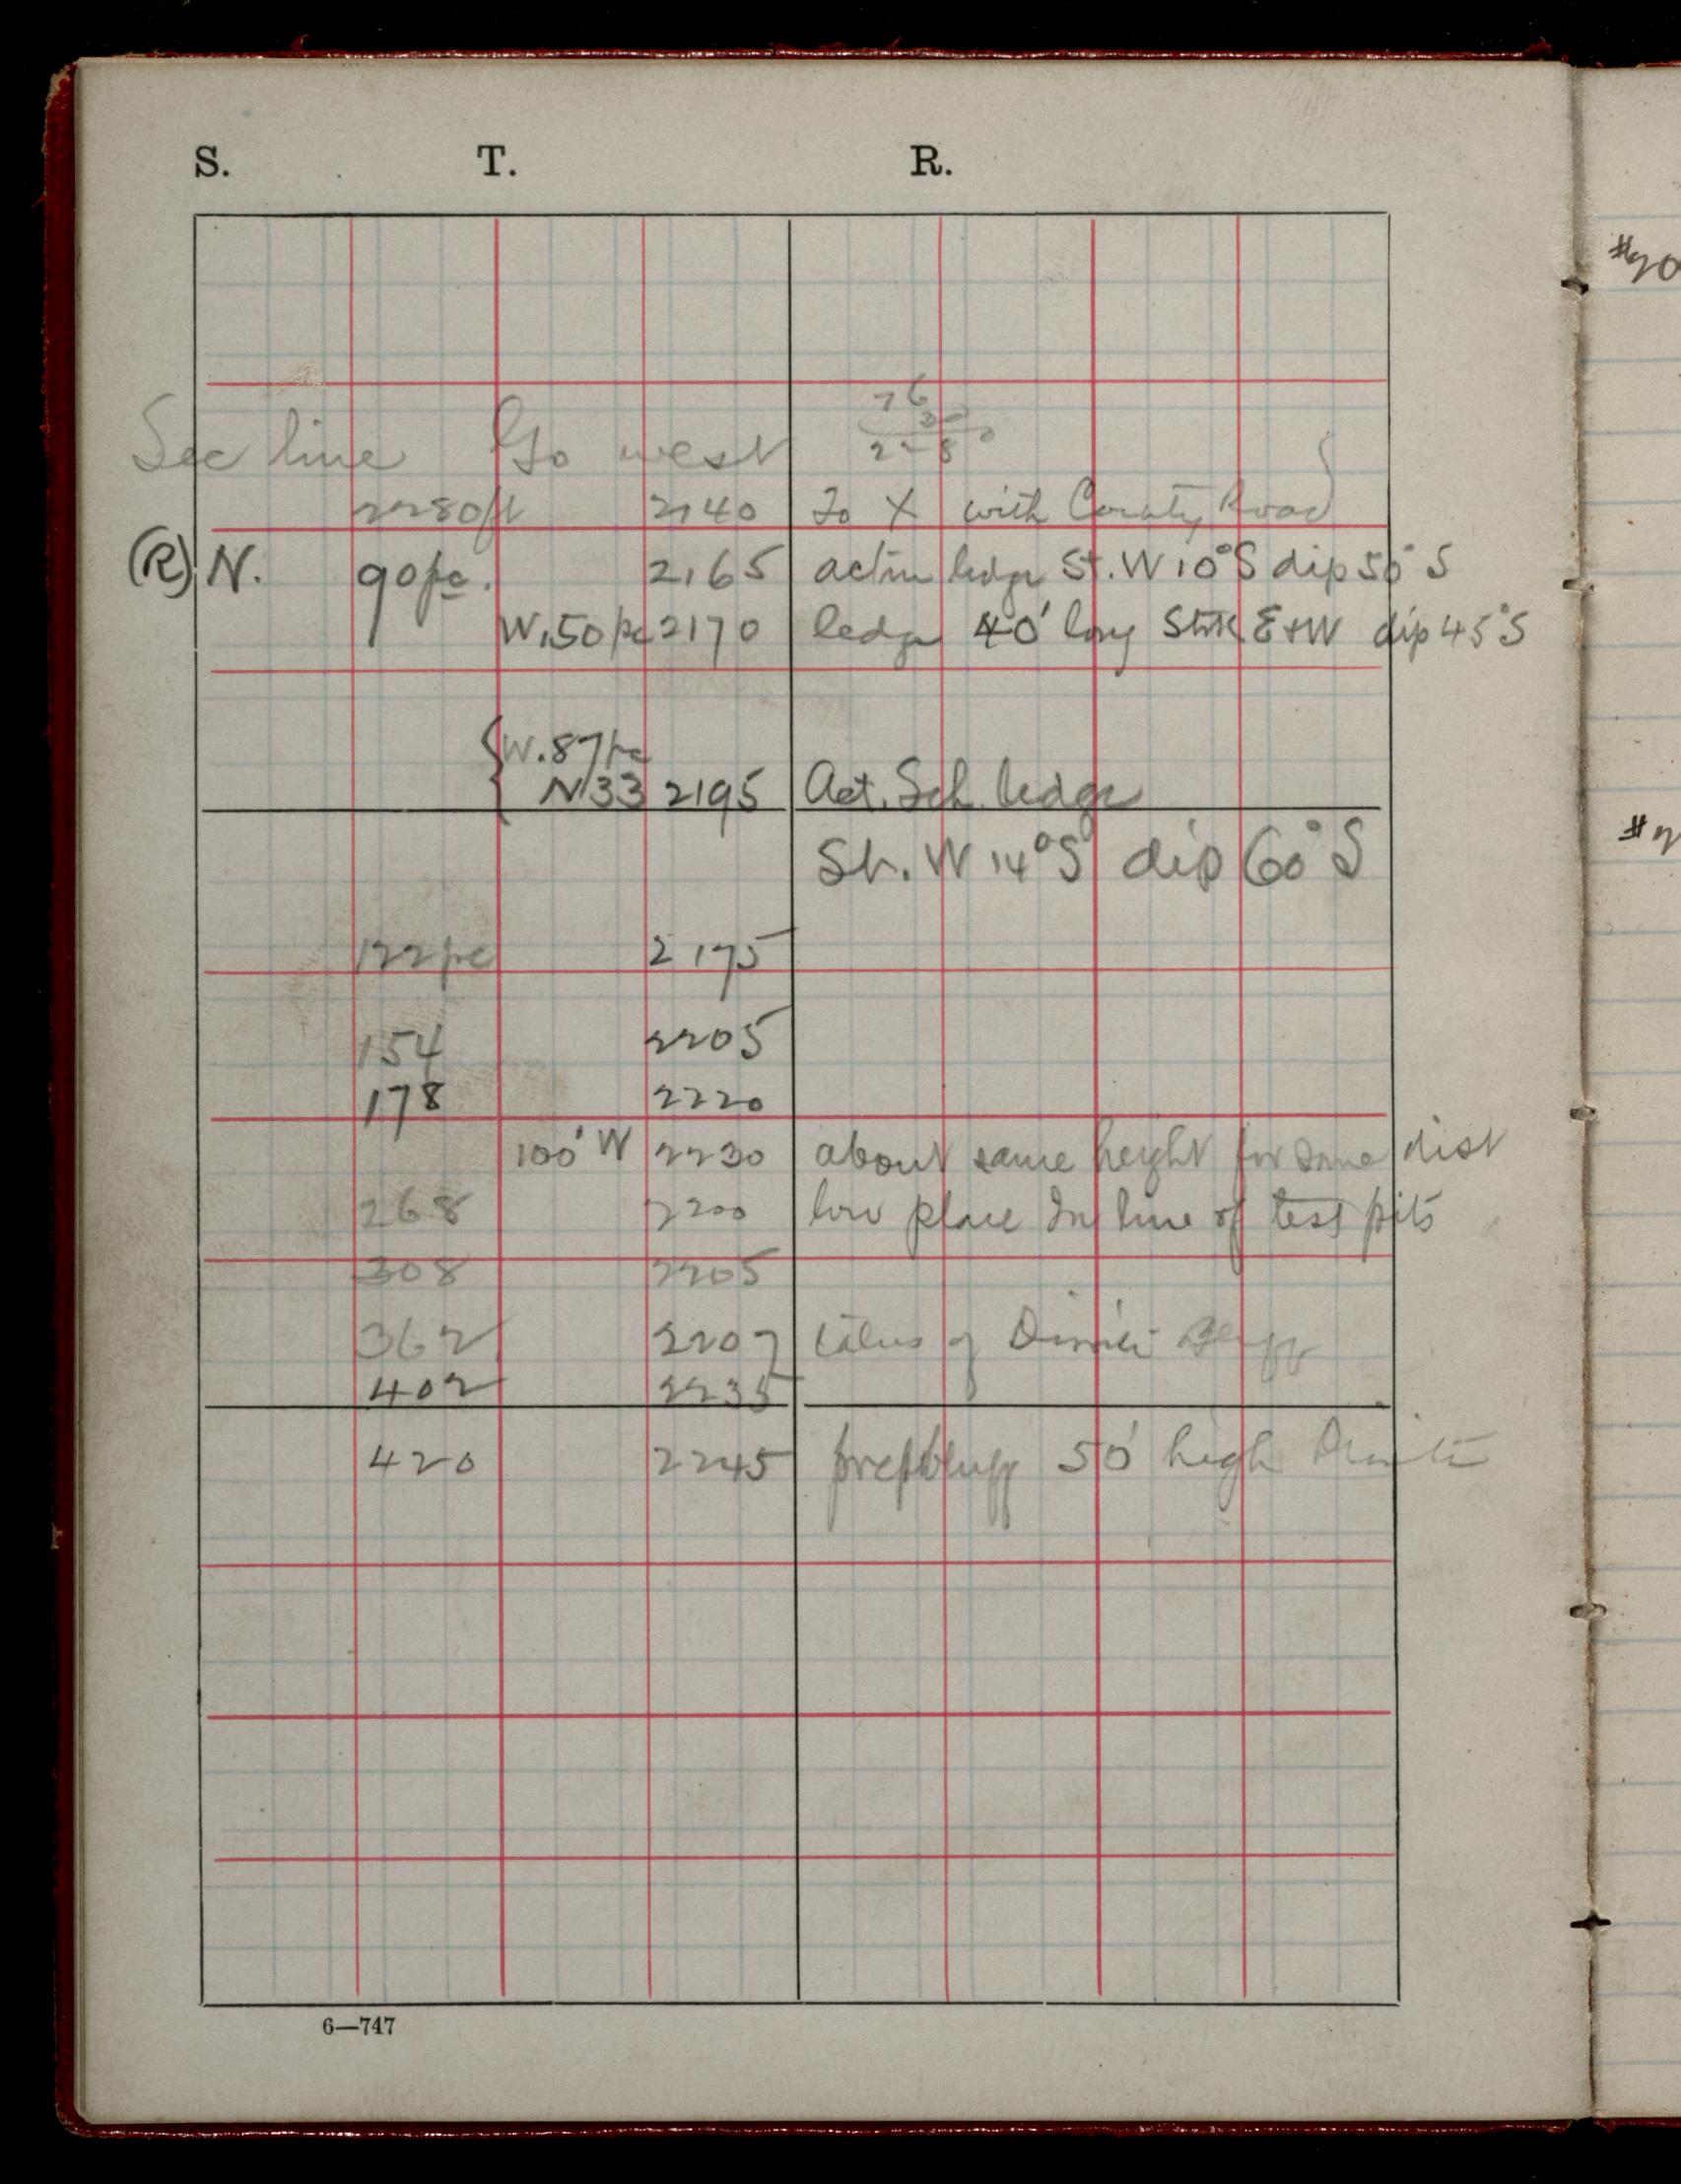 S. T. R.
76
30
2280
Sec line Go west
2280ft 2140 To X with County Road
(R) N. 90pc. 2165 actin ledge St. W 10° S dip 50° S
W.50pc 2170 ledge 40' long Strk E+W dip 45° S
{W.87pc
N33 2195 Act. Sch. ledge
St. W 14° S dip 60° S
122pc 2175
154 2205
178 2220
100' W 2230 about same height for some dist
268 2200 low place In line of test pits
308 2205
362 2207 talus of Diorite Bluff
402 2235
420 2245 bluff 50' high Diorite
6—747
#20
#2